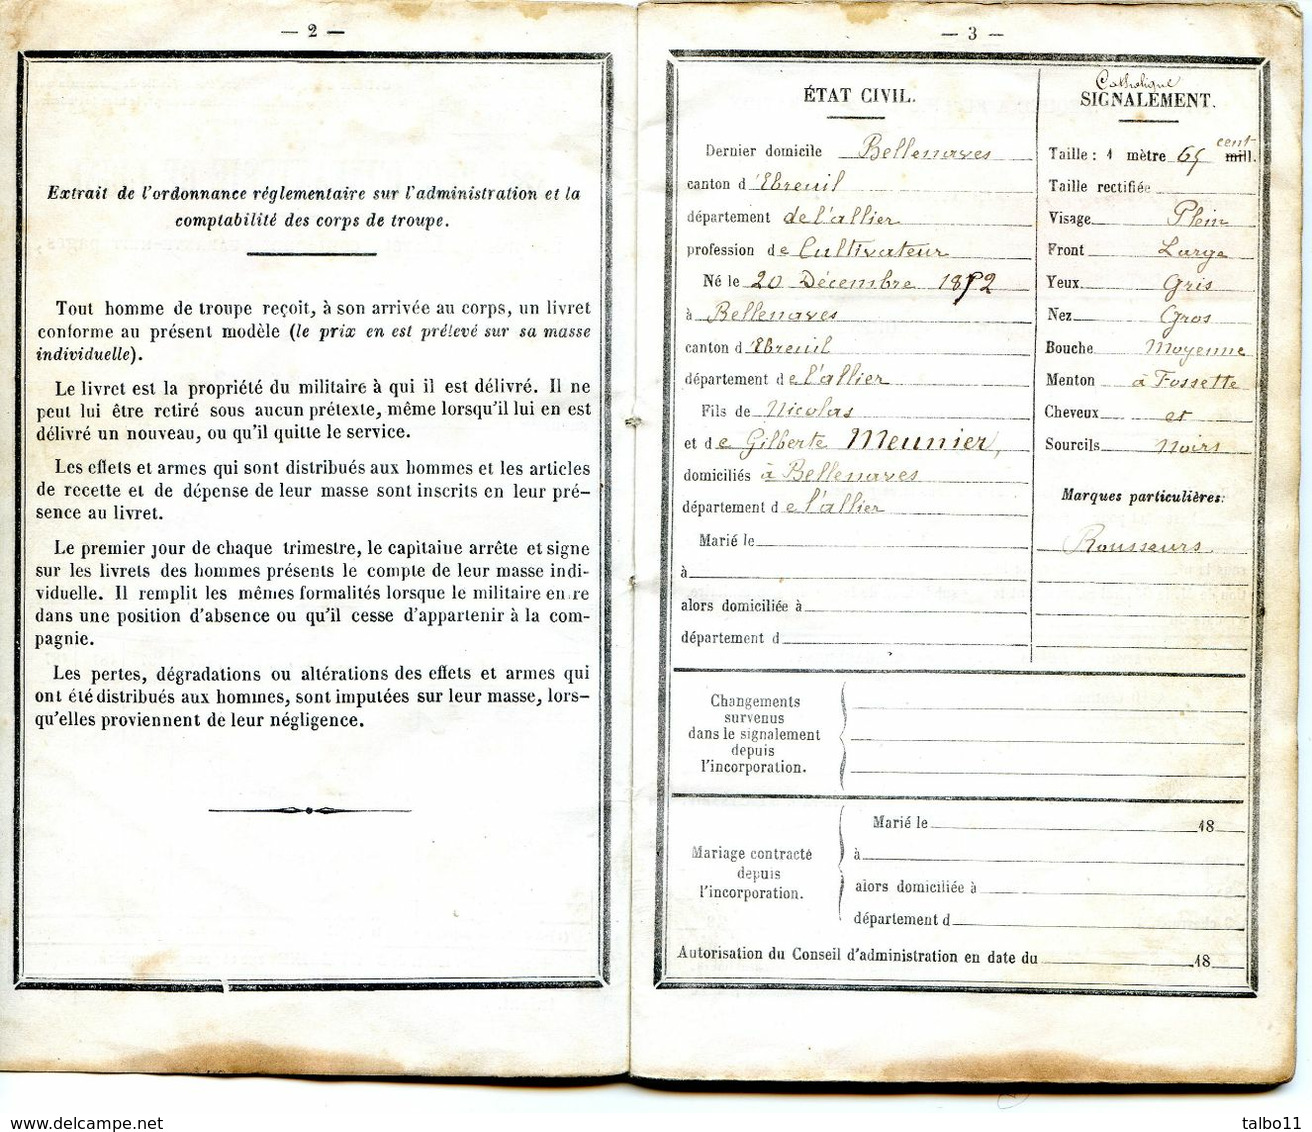 — 2 —
Extrait de l'ordonnance réglementaire sur l'administration et la
comptabilité des corps de troupe.
Tout homme de troupe reçoit, à son arrivée au corps, un livret
conforme au présent modèle (le prix en est prélevé sur sa masse
individuelle).
Le livret est la propriété du militaire à qui il est délivré. Il ne
peut lui être retiré sous aucun prétexte, même lorsqu'il lui en est
délivré un nouveau, ou qu'il quitte le service.
Les effets et armes qui sont distribués aux hommes et les articles
de recette et de dépense de leur masse sont inscrits en leur pré-
sence au livret.
Le premier jour de chaque trimestre, le capitaine arrête et signe
sur les livrets des hommes présents le compte de leur masse indi-
viduelle. Il remplit les mêmes formalités lorsque le militaire entre
dans une position d'absence ou qu'il cesse d'appartenir à la com-
pagnie.
Les pertes, dégradations ou altérations des effets et armes qui
ont été distribués aux hommes, sont imputées sur leur masse, lors-
qu'elles proviennent de leur négligence.
— 3 —
ÉTAT CIVIL.
Dernier domicile Bellenaves
canton d'Ebreuil
département de l'allier
profession de Cultivateur
Né le 20 Décembre 1852
à Bellenaves
canton d'Ebreuil
département de l'allier
Fils de Nicolas
et de Gilberte Meunier,
domiciliés à Bellenaves
département de l'allier
Marié le
à
alors domiciliée à
département d
Catholique
SIGNALEMENT.
Taille : 1 mètre 65 cent mill.
Taille rectifiée
Visage Plein
Front Large
Yeux Gris
Nez Gros
Bouche Moyenne
Menton à Fossette
Cheveux et
Sourcils noirs
Marques particulières:
Rousseurs
Changements
survenus
dans le signalement
depuis
l'incorporation.
Mariage contracté
depuis
l'incorporation.
Marié le 18
à
alors domiciliée à
département d
Autorisation du Conseil d'administration en date du 18
www.delcampe.net
talbo11